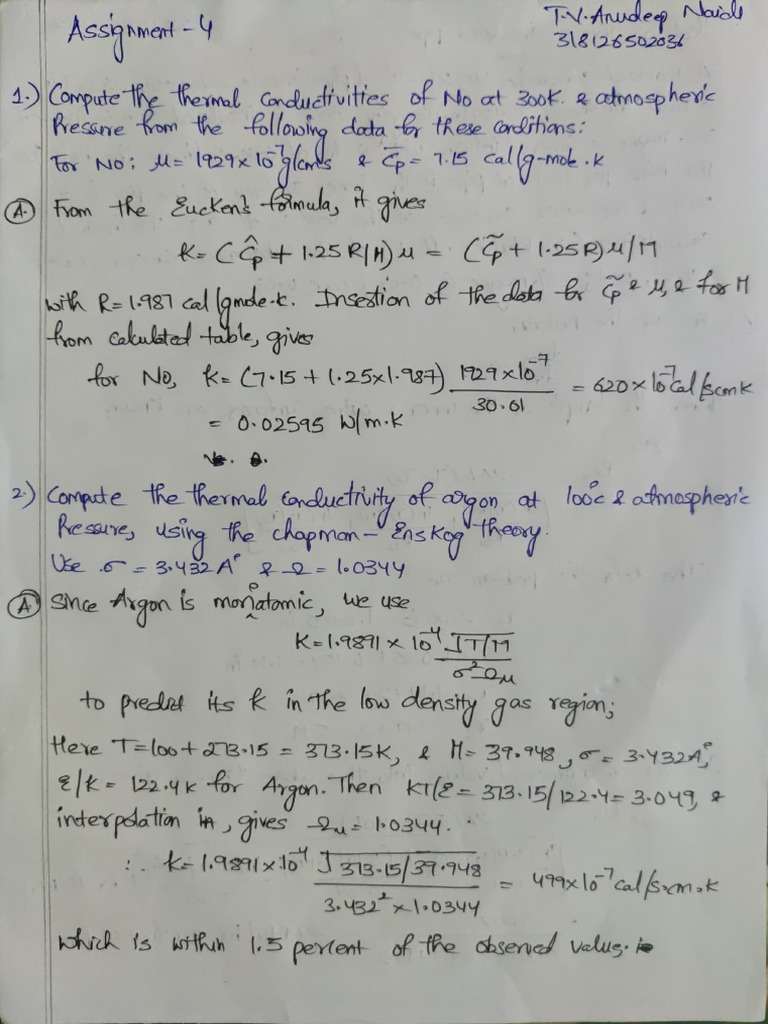 Assignment - 4
T.V. Anudeep Naidu
318126502036
1.) Compute the thermal conductivities of No at 300K. & atmospheric
Pressure from the following data for these conditions:
For NO: μ = 1929 × 10⁻⁷ g/cm·s & C̅p = 7.15 cal/g-mole.k
(A.) From the Eucken's formula, it gives
K = (Ĉp + 1.25 R/M) μ = (C̃p + 1.25R) μ/M
with R = 1.987 cal/gmole.k. Insertion of the data for C̃p & μ, & for M
from calculated table, gives
for No, k = (7.15 + 1.25×1.987) 1929×10⁻⁷ / 30.01 = 620 × 10⁻⁷ cal/s cm K
= 0.02595 W/m.k
2.) Compute the thermal conductivity of argon at 100°c & atmospheric
Pressure, using the chapman - Enskog theory.
Use σ = 3.432 A° & Ω = 1.0344
(A) Since Argon is monoatomic, we use
K = 1.9891 × 10⁻⁴ √T/M / σ²Ωμ
to predict its k in the low density gas region;
Here T = 100 + 273.15 = 373.15K, & M = 39.948, σ = 3.432A°,
ε/k = 122.4K for Argon. Then KT/ε = 373.15/122.4 = 3.049, &
interpolation in, gives Ωμ = 1.0344.
∴ K = 1.9891×10⁻⁴ √373.15/39.948 / 3.432² × 1.0344 = 499×10⁻⁷ cal/s.cm.k
which is within 1.5 percent of the observed value.